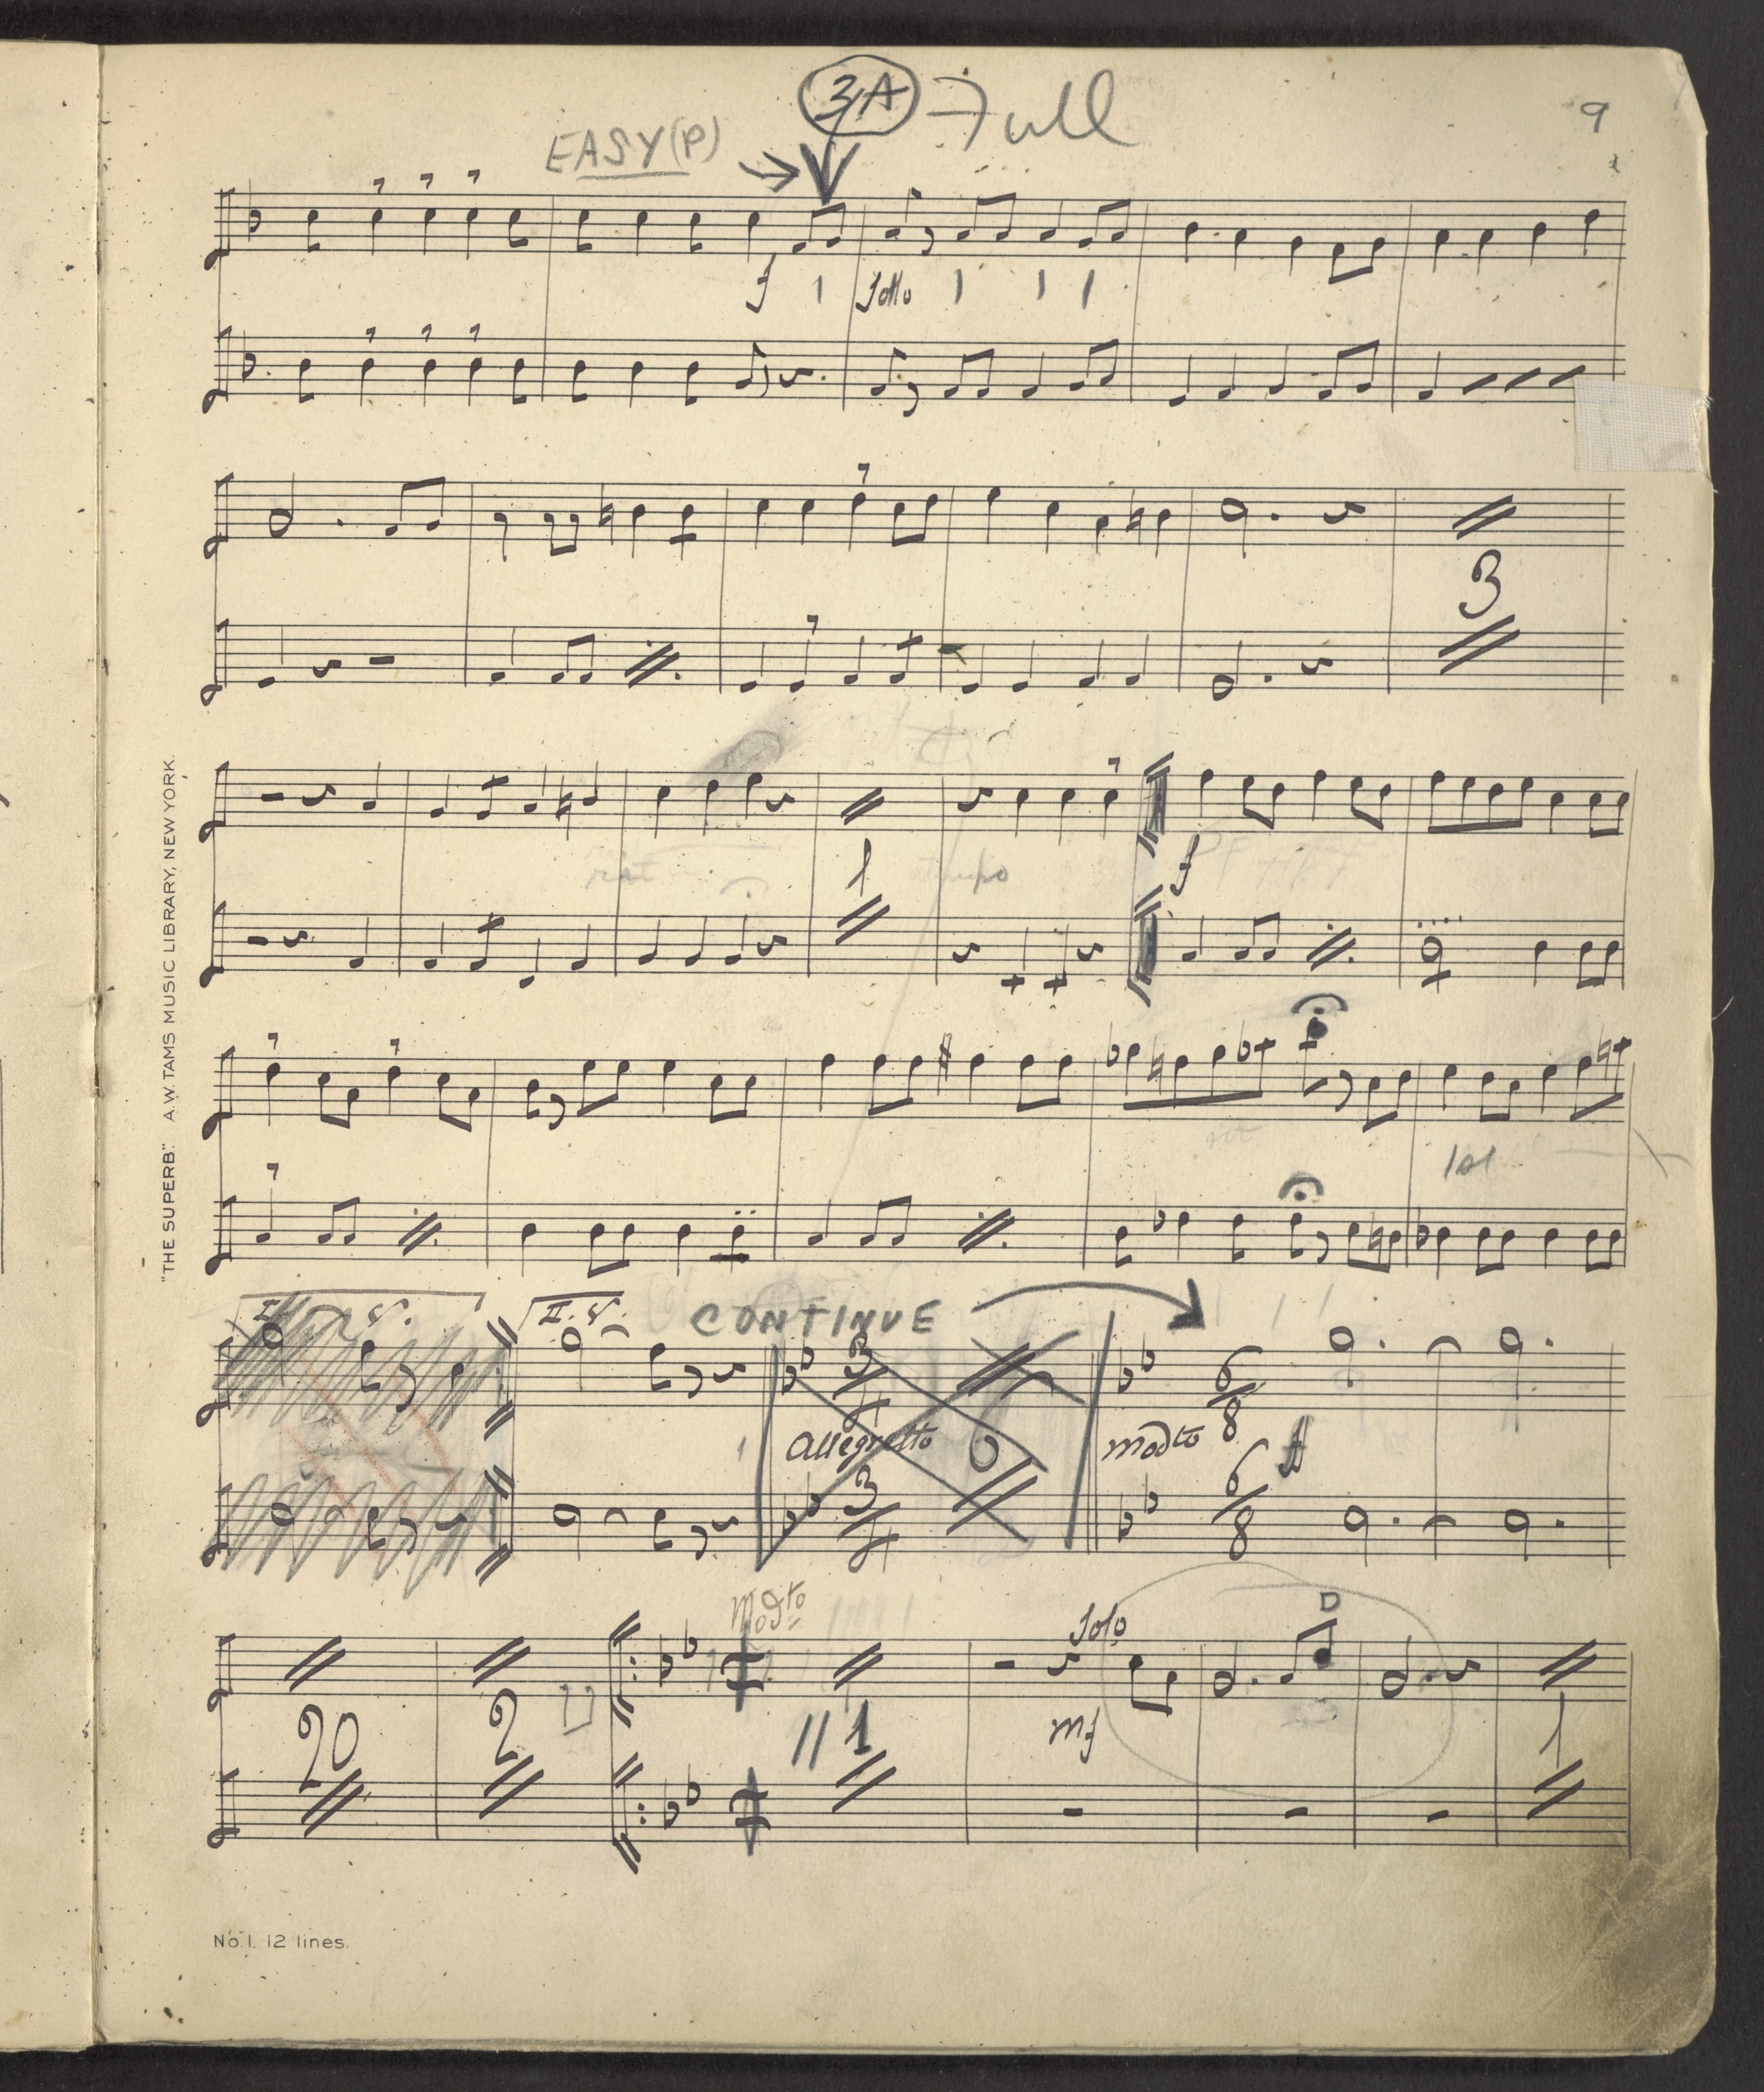 3A Full
9
EASY (P)
f Solo
3
rit
1
f
1st
I. V.
II. V.
CONTINUE
3
4
Allegretto
6
3
4
Modto
6
8
ff
6
8
Modto
Solo
D
20
2
1
mf
1
"THE SUPERB." A.W. TAMS MUSIC LIBRARY, NEW YORK.
No. 1. 12 lines.